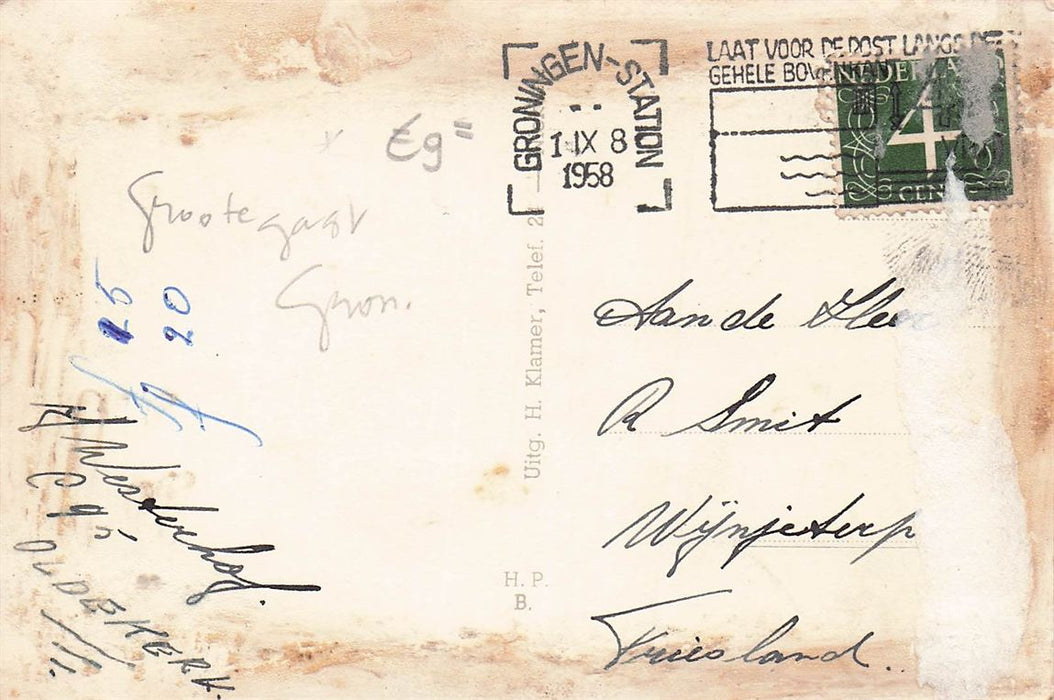 GRONINGEN-STATION
1 IX 8
1958
LAAT VOOR DE POST LANGS DE
GEHELE BOVENKANT
NEDERLAND
4
CENT
Eg"
Grootegast
Gron.
25
20
Westerhof.
OLDEKERK
Uitg. H. Klamer, Telef. 2
H. P.
B.
Aan de Heer
R Smit
Wijnjeterp
Friesland.